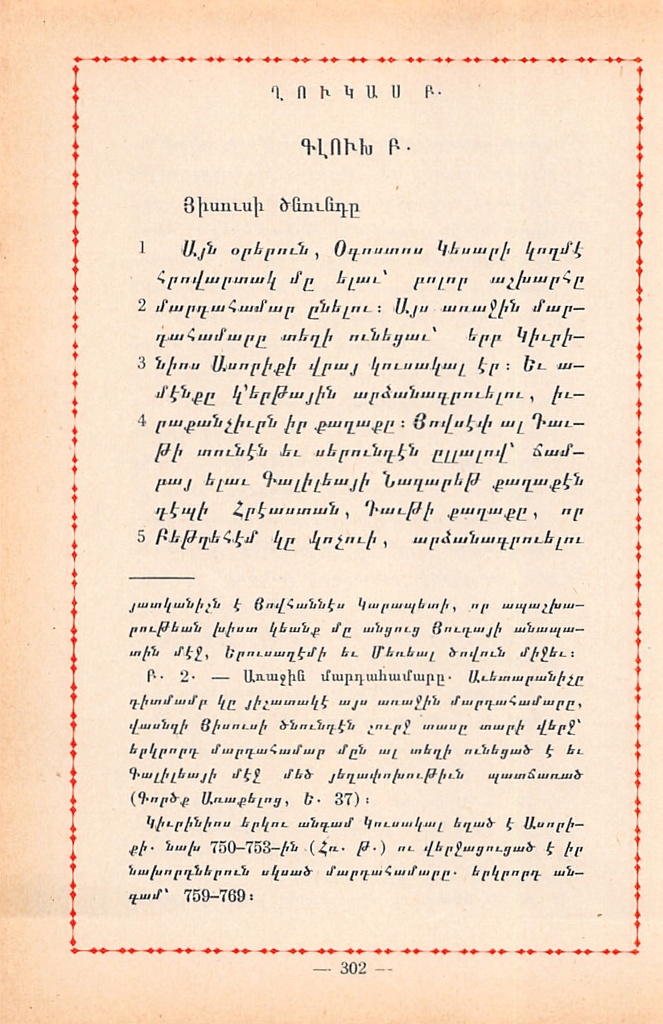 ՂՈՒԿԱՍ Բ.
ԳԼՈՒԽ Բ.
Յիսուսի ծնունդը
1 Այն օրերուն, Օգոստոս Կեսարի կողմէ
հրովարտակ մը ելաւ՝ բոլոր աշխարհը
2 մարդահամար ընելու։ Այս առաջին մար–
դահամարը տեղի ունեցաւ՝ երբ Կիւրի–
3 նիոս Ասորիքի վրայ կուսակալ էր։ Եւ ա–
մէնքը կ՚երթային արձանագրուելու, իւ–
4 րաքանչիւրն իր քաղաքը։ Յովսէփ ալ Դաւ–
թի տունէն եւ սերունդէն ըլլալով՝ ճամ–
բայ ելաւ Գալիլեայի Նազարեթ քաղաքէն
դէպի Հրէաստան, Դաւթի քաղաքը, որ
5 Բեթղեհէմ կը կոչուի, արձանագրուելու
յատկանիշն է Յովհաննէս Կարապետի, որ ապաշխա–
րութեան խիստ կեանք մը անցուց Յուդայի անապա–
տին մէջ, Երուսաղէմի եւ Մեռեալ ծովուն միջեւ։
Բ. 2. — Առաջին մարդահամարը. Աւետարանիչը
դիտմամբ կը յիշատակէ այս առաջին մարդահամարը,
վասնզի Յիսուսի ծնունդէն շուրջ տասը տարի վերջ՝
երկրորդ մարդահամար մըն ալ տեղի ունեցած է եւ
Գալիլեայի մէջ մեծ յեղափոխութիւն պատճառած
(Գործք Առաքելոց, Ե. 37)։
Կիւրինիոս երկու անգամ Կուսակալ եղած է Ասորի–
քի. նախ 750–753–ին (Հռ. Թ.) ու վերջացուցած է իր
նախորդներուն սկսած մարդահամարը. երկրորդ ան–
գամ՝ 759–769։
— 302 —